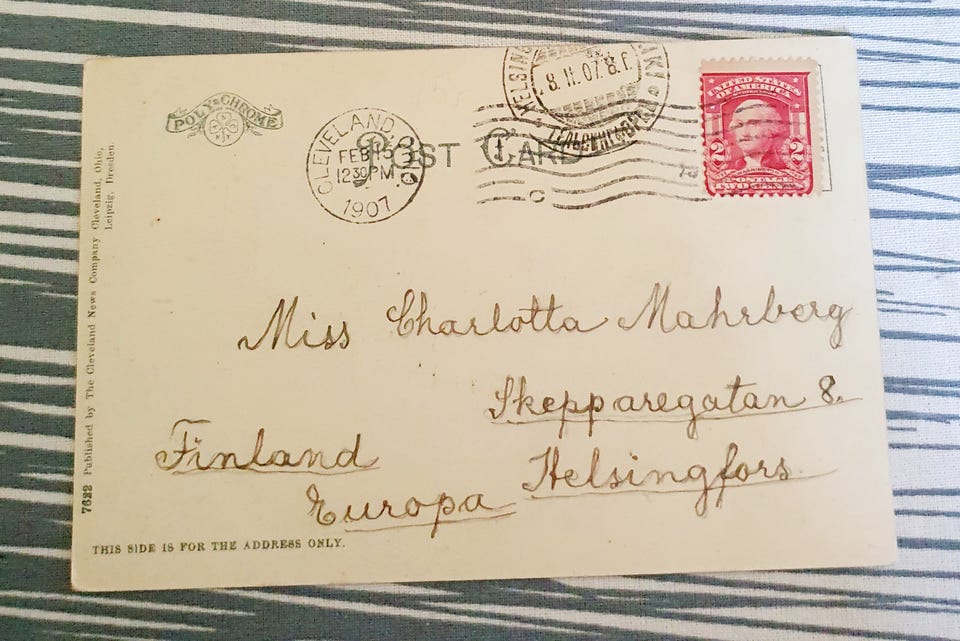 POLY-CHROME
POST CARD
CLEVELAND, O.
FEB 15
12 30 PM
1907
8.II.07. 8.f.
UNITED STATES
OF AMERICA
2 2
TWO CENTS
Miss Charlotta Mahrberg
Skepparegatan 8.
Helsingfors.
Finland
Europa
7622 Published by The Cleveland News Company Cleveland, Ohio,
Leipzig, Dresden.
THIS SIDE IS FOR THE ADDRESS ONLY.